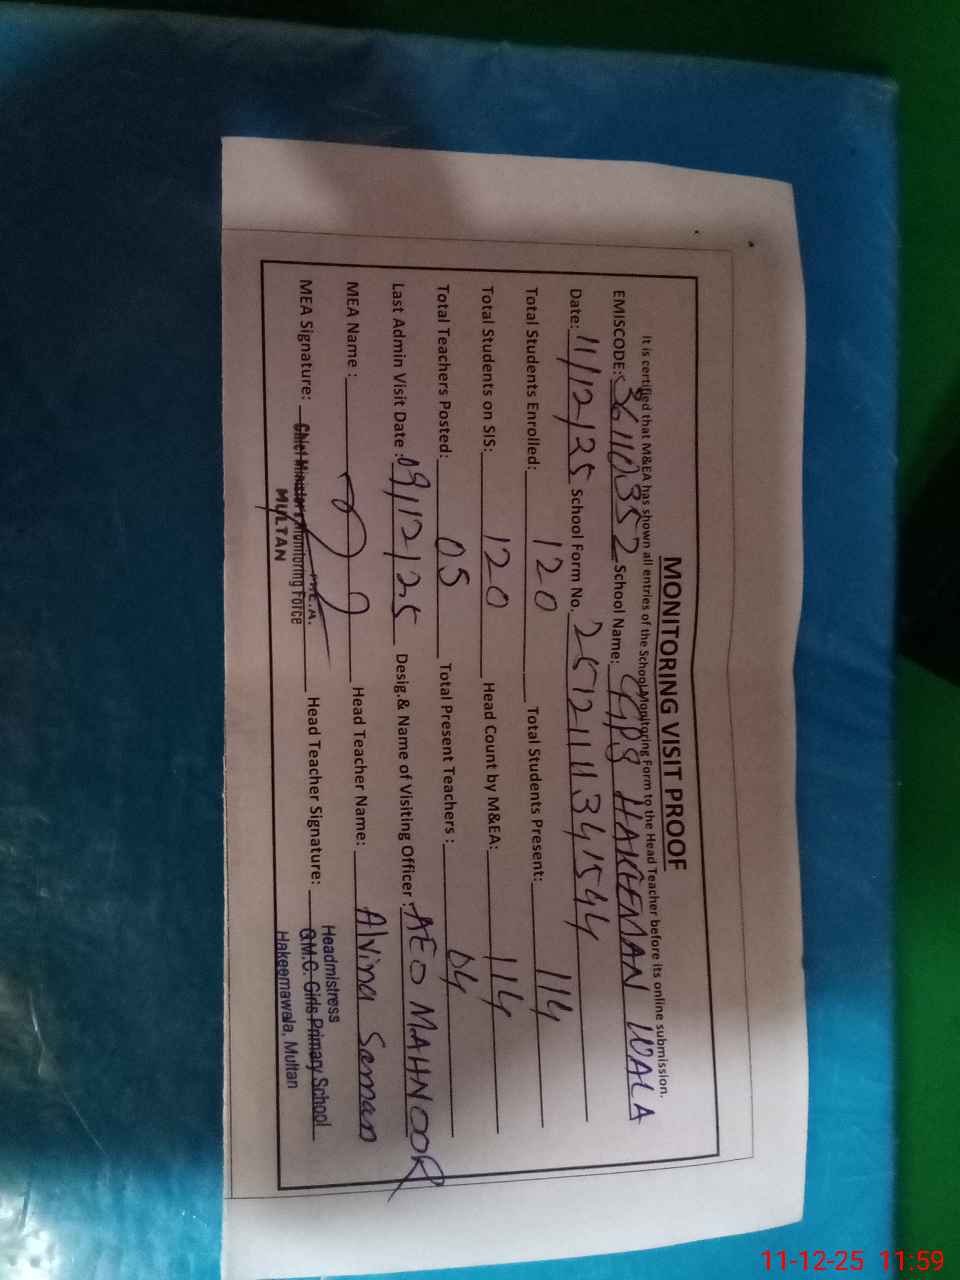 MONITORING VISIT PROOF
It is certified that M&EA has shown all entries of the School Monitoring Form to the Head Teacher before its online submission.
EMISCODE: 36110352 School Name: GGPS HAKEEMAN WALA
Date: 11/12/25 School Form No. 25121111341544
Total Students Enrolled: 120 Total Students Present: 114
Total Students on SIS: 120 Head Count by M&EA: 114
Total Teachers Posted: 05 Total Present Teachers : 04
Last Admin Visit Date : 09/12/25 Desig.& Name of Visiting Officer : AEO MAHNOOR
MEA Name : Head Teacher Name: Alvina Saman
MEA Signature: Head Teacher Signature:
M.E.A.
Chief Minister's Monitoring Force
MULTAN
Headmistress
G.M.C. Girls Primary School
Hakeemawala, Multan
11-12-25 11:59